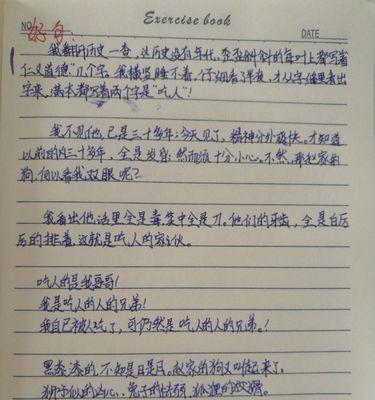 Exercise book
NO.
DATE
好句:
我翻开历史一查,这历史没有年代,歪歪斜斜的每叶上都写着
仁义道德"几个字。我横竖睡不着,仔细看了半夜,才从字缝里看出
字来,满本都写着两个字是"吃人"!
我不见他,已是三十多年;今天见了,精神分外爽快。才知道
以前的三十多年,全是发昏;然而须十分小心。不然,那赵家的
狗,何以看我双眼呢?
我看出他话里全是毒,笑中全是刀。他们的牙齿,全是白厉
厉的排着,这就是吃人的家伙。
吃人的是我哥哥!
我是吃人的人的兄弟!
我自己被人吃了,可仍然是吃人的人的兄弟。!
黑漆漆的,不知是日是月。赵家的狗又叫起来了。
狮子似的凶心,兔子的怯弱,狐狸的狡猾。